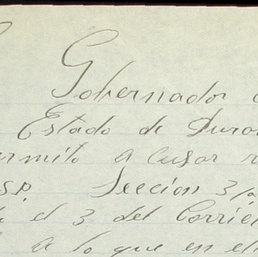 Gobernador
Estado de Duran
ermito a cusar r
SP. Seccion 3
el 3 del Corrie
a lo que en el